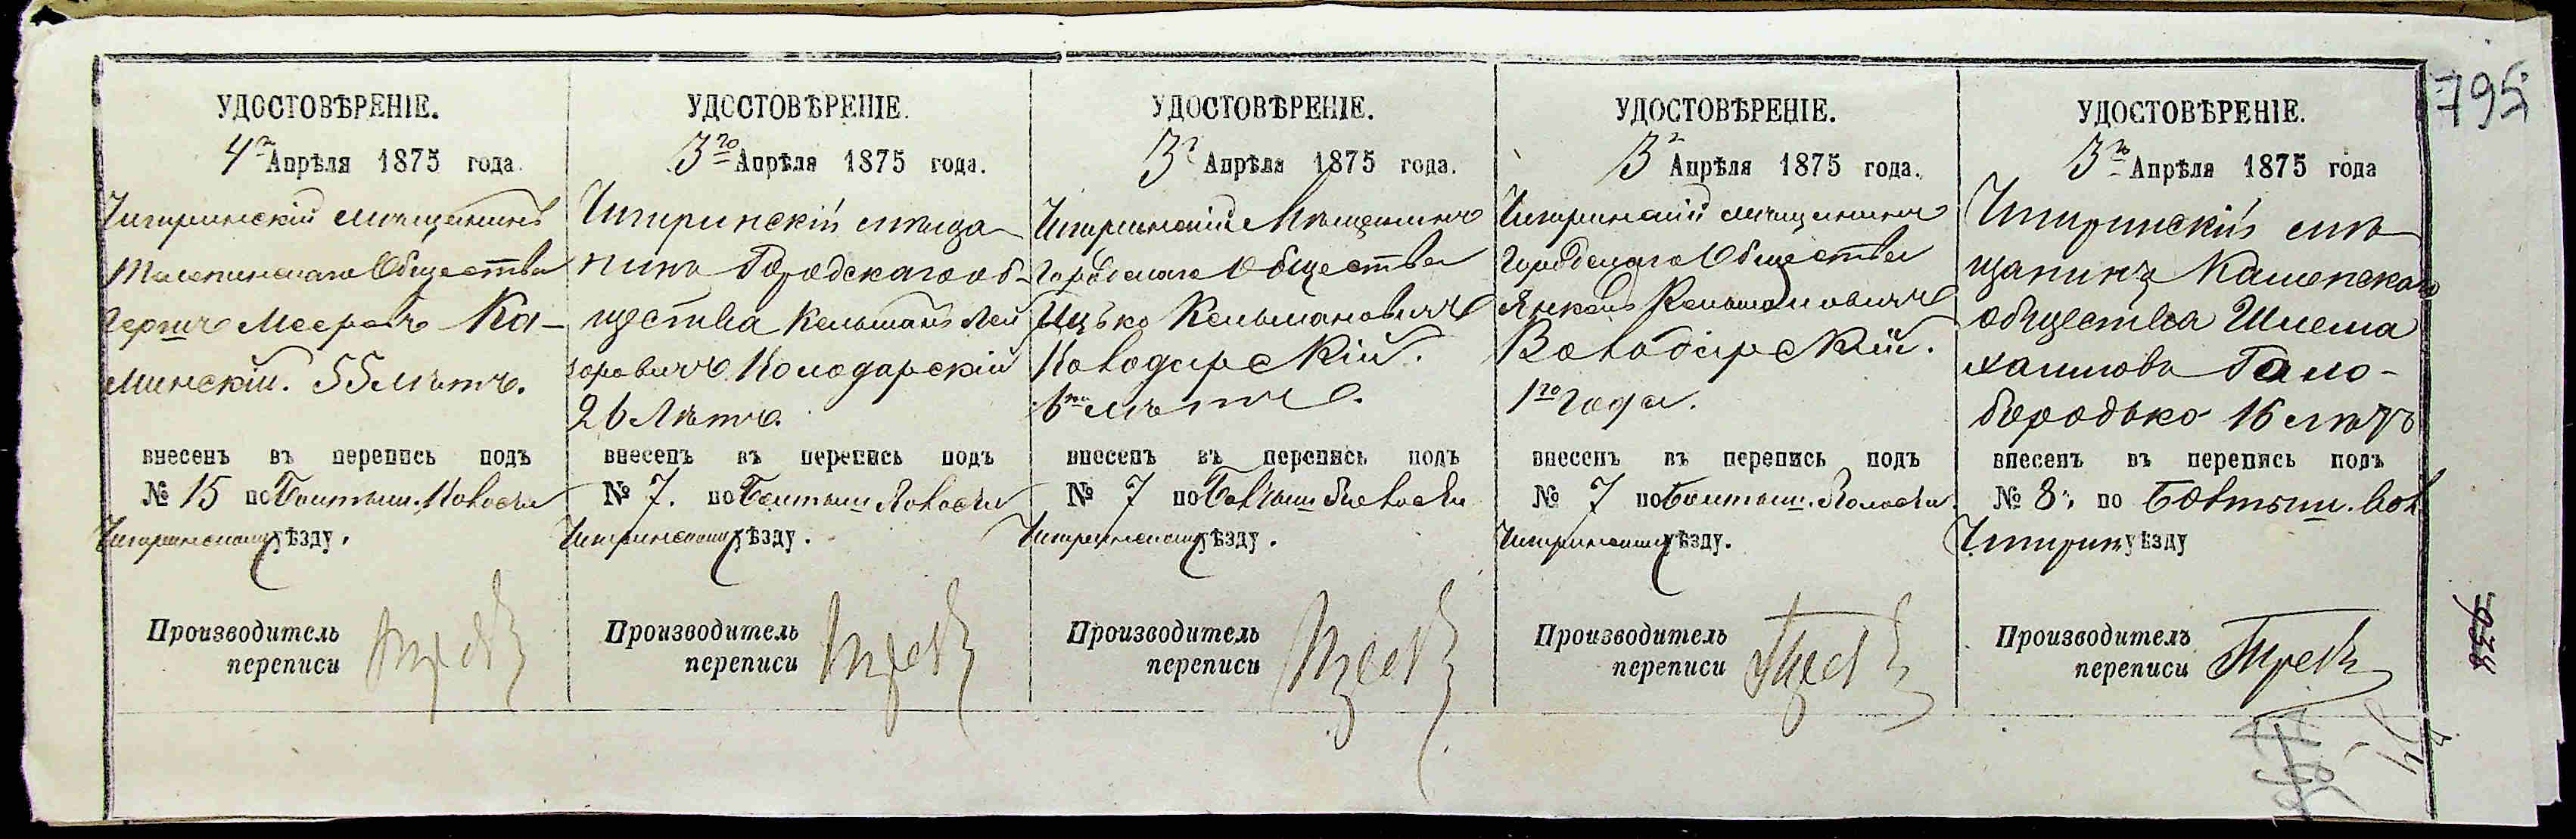 795
УДОСТОВѢРЕНІЕ.
4го Апрѣля 1875 года.
Чигиринскій мѣщанинъ
Общества
Гершъ Мееровъ Ка-
минскій. 55 лѣтъ.
внесенъ въ перепись подъ
№ 15 по Болтыш. Волости
Чигиринскому уѣзду.
Производитель
переписи
УДОСТОВѢРЕНІЕ.
3го Апрѣля 1875 года.
Чигиринскій мѣща-
нинъ Городскаго об-
щества Кельманъ Лей
зоровичъ Володарскій
26 Лѣтъ.
внесенъ въ перепись подъ
№ 7. по Болтыш. Волости
Чигиринскому уѣзду.
Производитель
переписи
УДОСТОВѢРЕНІЕ.
3г Апрѣля 1875 года.
Чигиринскій Мѣщанинъ
Городскаго Общества
Ицько Кельмановичъ
Володарскій.
6ти лѣтъ.
внесенъ въ перепись подъ
№ 7 по Болтыш Волости
Чигиринскому уѣзду.
Производитель
переписи
УДОСТОВѢРЕНІЕ.
3г Апрѣля 1875 года.
Чигиринскій мѣщанинъ
Городскаго Общества
Янкель Кельмановичъ
Володарскій.
1го года.
внесенъ въ перепись подъ
№ 7 по Болтыш. Волости
Чигиринскому уѣзду.
Производитель
переписи
УДОСТОВѢРЕНІЕ.
3го Апрѣля 1875 года
Чигиринскій мѣ-
щанинъ Каменскаго
общества Шлема
Хаимовъ Голо-
бородько 16 лѣтъ
внесенъ въ перепись подъ
№ 8. по Болтыш. вол
Чигирин уѣзду
Производитель
переписи